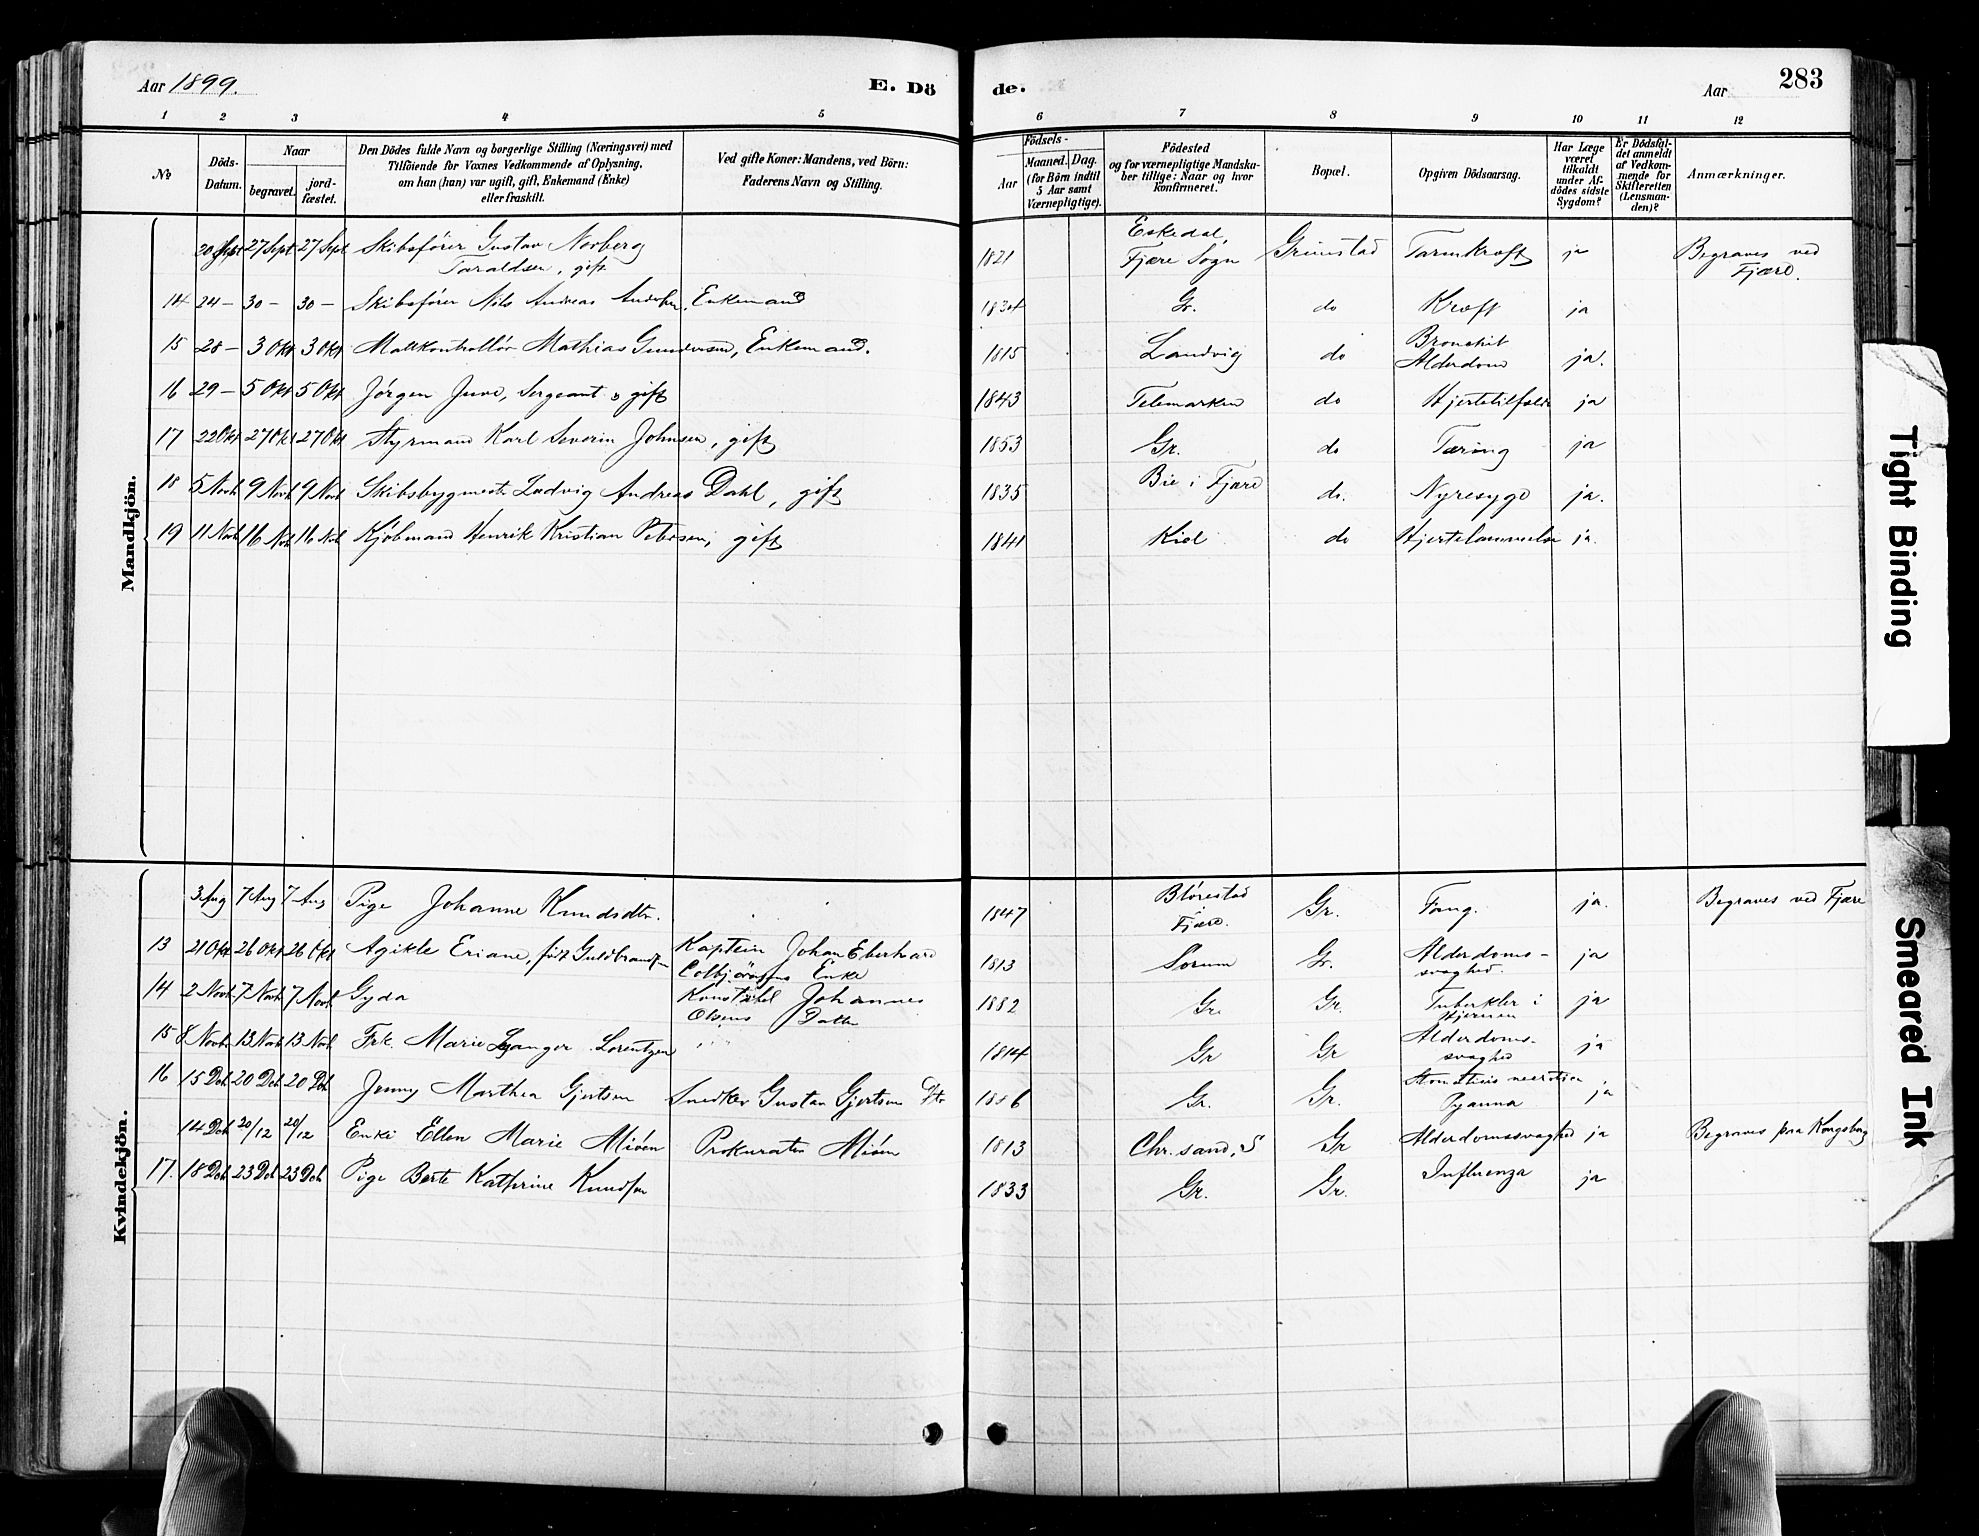 Aar 1899. E. Dö
de. Aar 283
1 2 3 4 5 6 7 8 9 10 11 12
No
Döds-Datum.
Naar
begravet. jordfæstet.
Den Dödes fulde Navn og borgerlige Stilling (Næringsvei) med
Tilföiende for Voxnes Vedkommende af Oplysning,
om han (hun) var ugift, gift, Enkemand (Enke)
eller fraskilt.
Ved gifte Koner: Mandens, ved Börn:
Faderens Navn og Stilling.
Födsels-
Aar Maaned. Dag.
(for Börn indtil
5 Aar samt
Værnepligtige).
Födested
og for værnepligtige Mandska-
ber tillige: Naar og hvor
Konfirmeret.
Bopæl.
Opgiven Dödsaarsag.
Har Læge
været
tilkaldt
under Af-
dödes sidste
Sygdom?
Er Dödsfal-
det anmeldt
af Vedkom-
mende for
Skifteretten
(Lensman-
den)?
Anmærkninger.
Mandkjön.
20 Sept 27 Sept 27 Sept Skibsfører Gustav Norberg Taraldsen, gift 1821 Eskedal, Fjære Sogn Grimstad Tarmkræft ja Begraves ved Fjære.
14 24 – 30 – 30 – Skibsfører Nils Andreas Andersen, Enkemand 1834 Gr. do Kræft ja
15 28 – 3 Okt 3 Okt Maltkontrollør Mathias Gundersen, Enkemand. 1815 Landvig do Bronchit Alderdom ja.
16 29 – 5 Okt 5 Okt Jørgen Juve, Sergeant, gift 1843 Telemarken do Hjertetilfælde ja
17 22 Okt 27 Okt 27 Okt Styrmand Karl Severin Johnsen, gift 1853 Gr. do Tæring ja
18 5 Novb 9 Novb 9 Novb Skibsbygmester Ludvig Andreas Dahl, gift 1835 Bie i Fjære do. Nyresyge ja.
19 11 Novb 16 Nob 16 Nob Kjøbmand Henrik Kristian Petersen, gift 1841 Kiel do Hjertelammelse ja.
Kvindekjön.
3 Aug 7 Aug 7 Aug Pige Johanne Knudsdtr. 1847 Fjære. Gr. ja. Begraves ved Fjære
13 21 Okt 26 Okt 26 Okt Eriane, født Guldbrandsen Kaptein Johan Eberhard Colbjørnsens Enke 1813 Sørum Gr. Alderdoms-svaghed. ja
14 2 Novb 7 Novb 7 Novb Gyda Johannes Olsens Datter 1882 Gr. Gr. Tuberkler i Hjernen ja
15 8 Novb. 13 Novb 13 Novb Frk. Marie Lorentzen 1814 Gr Gr Alderdoms-svaghed ja
16 15 Deb 20 Deb 20 Deb Jenny Marthea Gjertsen Snedker Gustav Gjertsens Dtr 1886 Gr. Gr. ja
14 Deb 20/12 20/12 Enke Ellen Marie Miøen Prokurator Miøen 1813 Chr.sand, S Gr Alderdomssvaghed ja Begraves paa Kongsberg
17. 18 Deb 23 Deb 23 Deb Pige Berte Kathrine Knudsen 1833 Gr. Gr. Influenza ja
Tight Binding
Smeared Ink